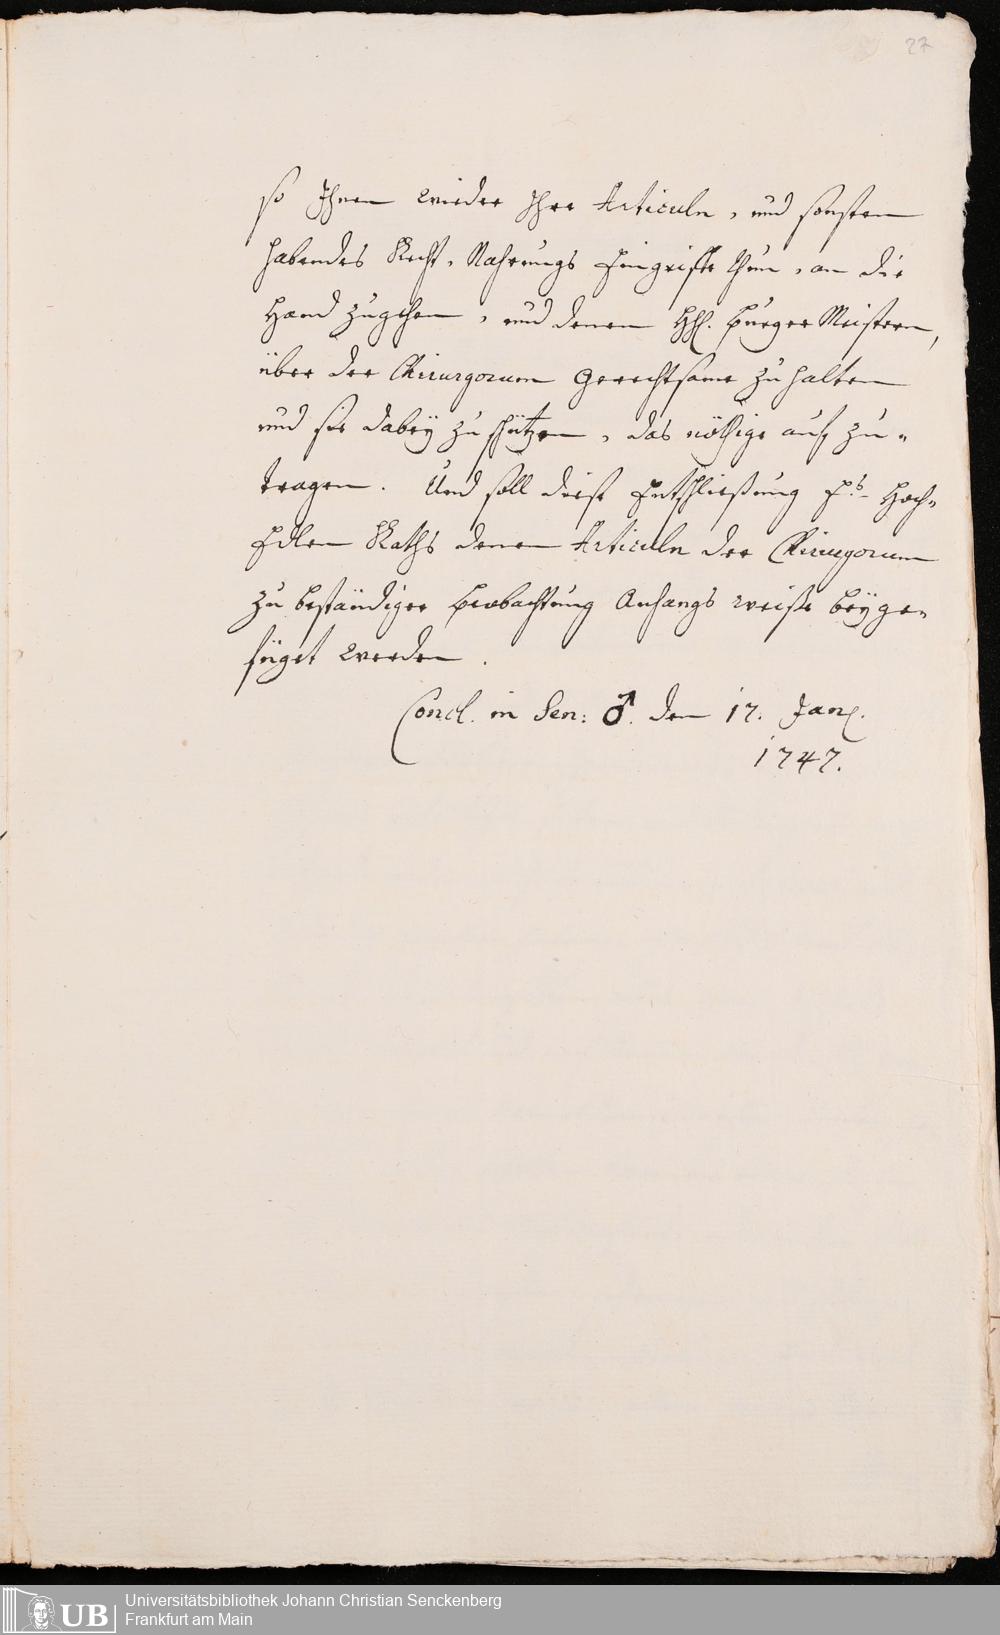 27
so Ihnen wieder Ihre Articuln, und sonsten
habendes Recht, Nahrungs Eingriffe thun, an die
Hand zugehen, und denen HH. Burger Meistern,
über der Chirurgorum Gerechtsame zu halten
und sie dabey zu schützen, das nöthige auf zu-
tragen. Und soll diese Entschließung Es. Hoch-
Edlen Raths denen Articuln der Chirurgorum
zu beständiger Beobachtung Anhangs weise beyge-
füget werden.
Concl. in Sen: ♂. den 17. Jan.
1747.
UB
Universitätsbibliothek Johann Christian Senckenberg
Frankfurt am Main